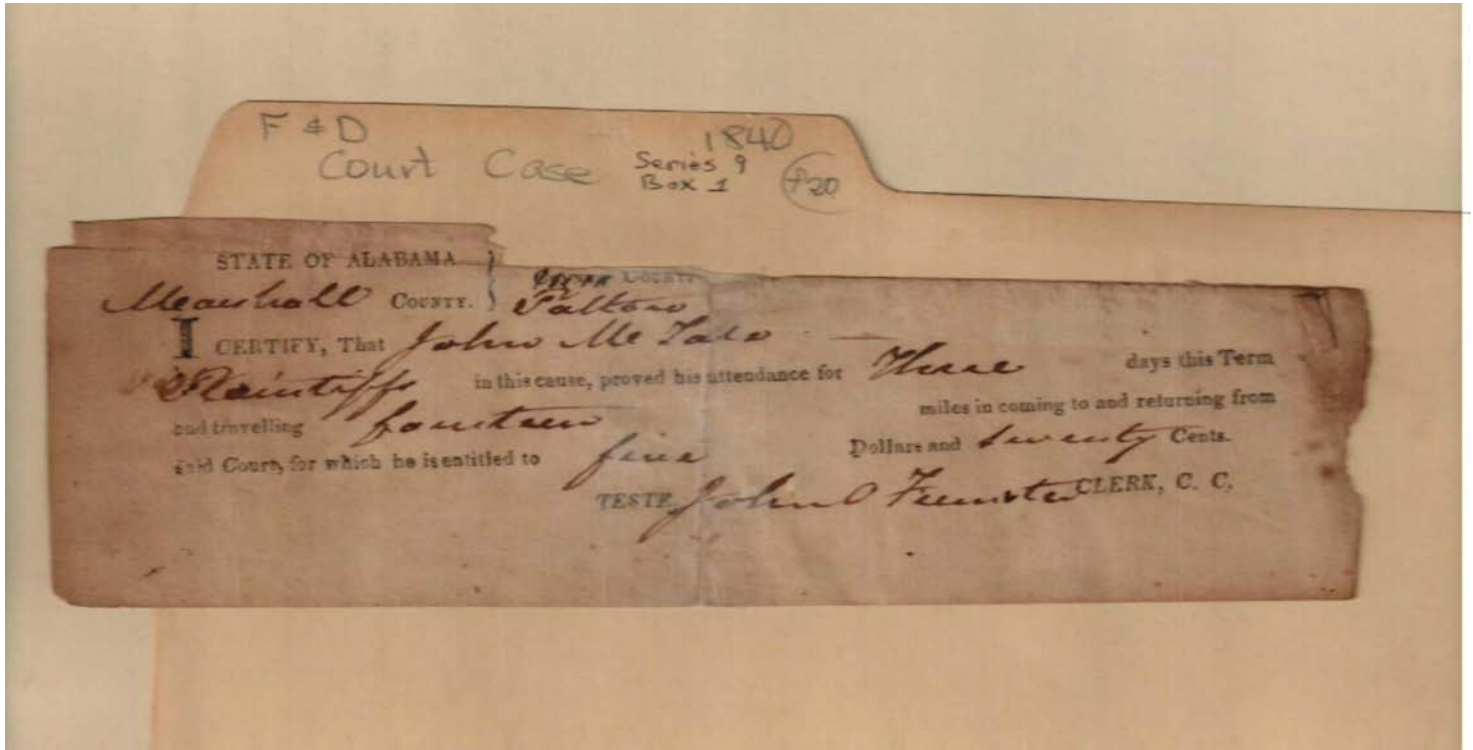 F & D
1840
Court Case
Series 9
Box 1
P20
STATE OF ALABAMA
Marshall COUNTY.
COUNTY
I CERTIFY, That John Mc
Plaintiffs in this cause, proved his attendance for Three days this Term
and travelling fourteen miles in coming to and returning from
said Court, for which he is entitled to five Dollars and twenty Cents.
TESTE John O Feemster CLERK, C. C.